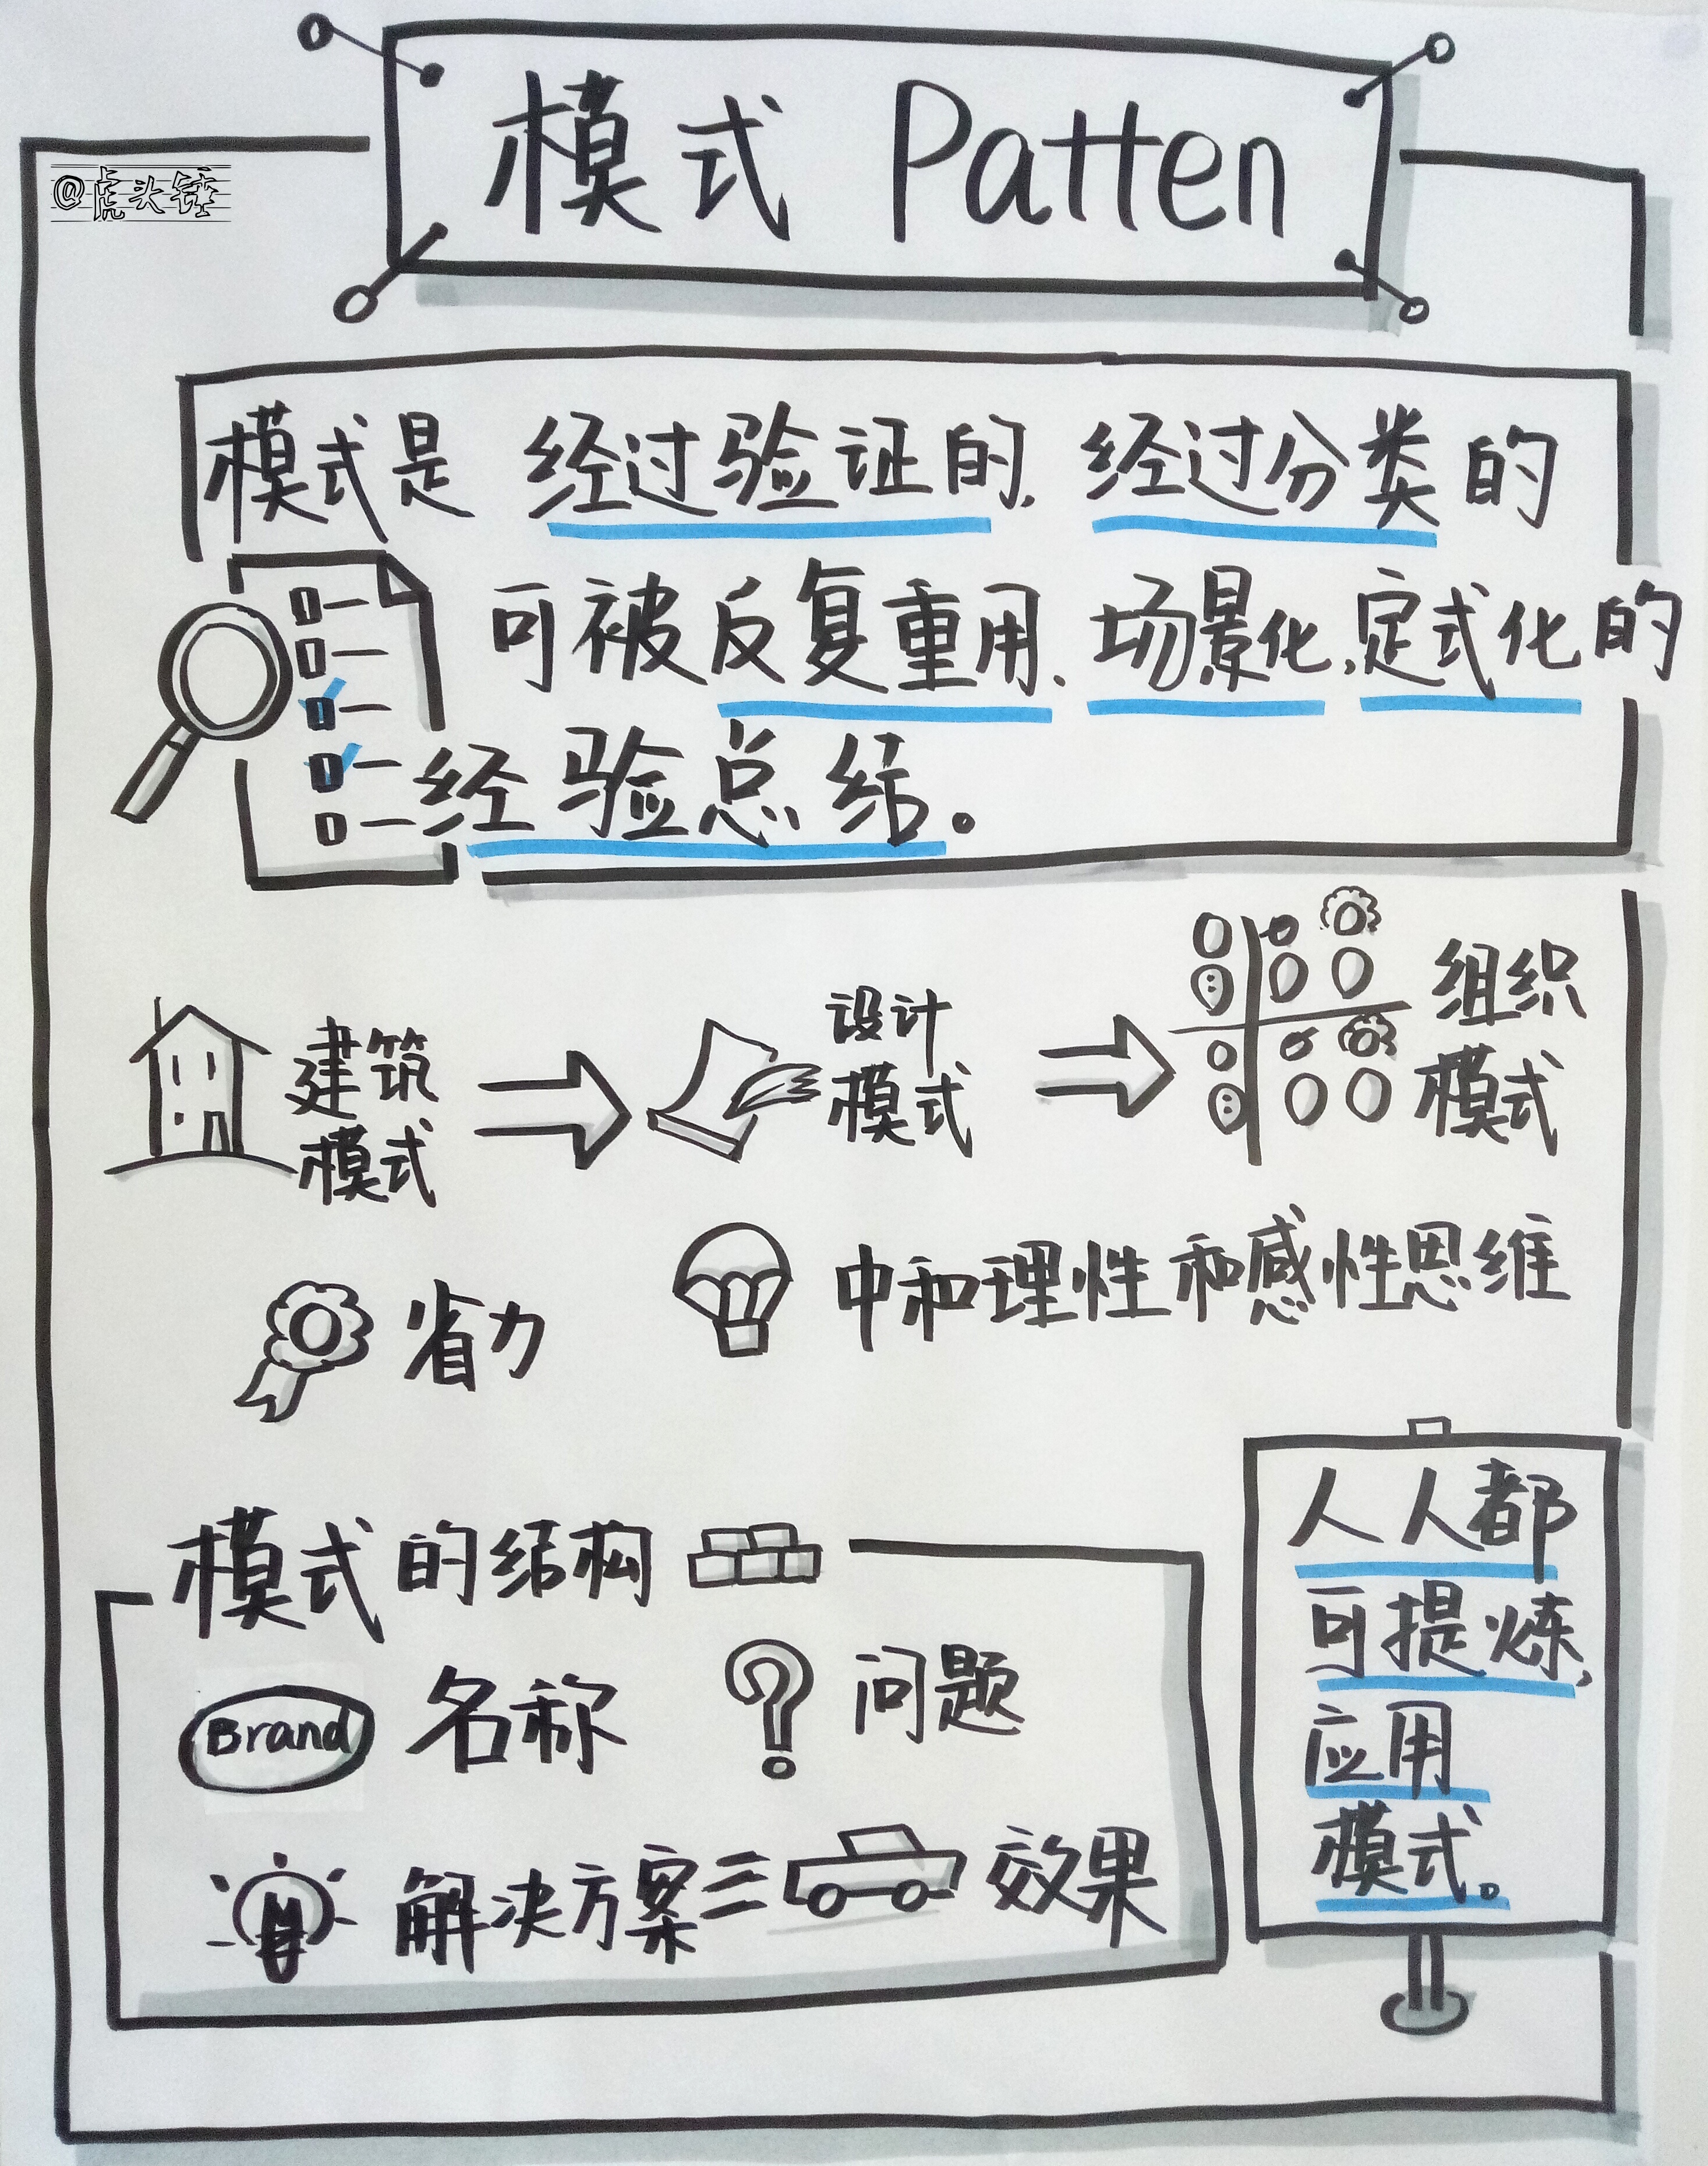 模式 Patten
@虎头锤
模式是 经过验证的, 经过分类的
可被反复重用、场景化,定式化的
经验总结。
建筑
模式
设计
模式
组织
模式
省力
中和理性和感性思维
模式的结构
Brand 名称
? 问题
解决方案
效果
人人都
可提炼,
应用
模式。